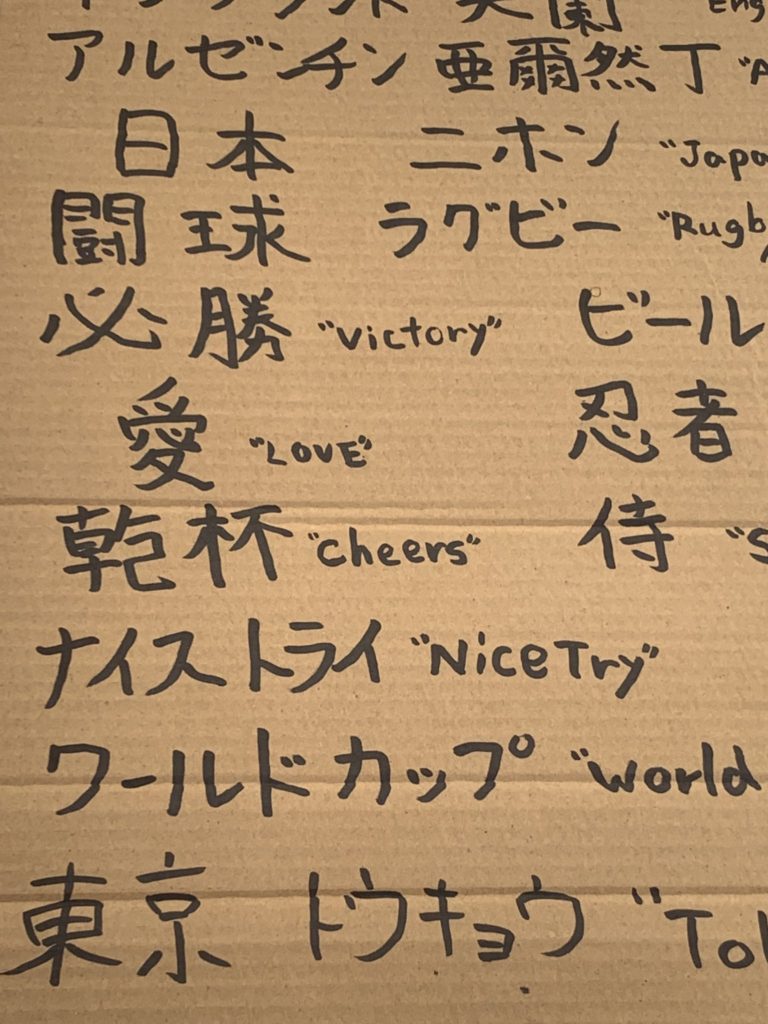 イングランド 英蘭 "Eng
アルゼンチン 亜爾然丁 "A
日本 ニホン "Japa
闘球 ラグビー "Rugby
必勝 "victory" ビール
愛 "LOVE" 忍者
乾杯 "cheers" 侍 "S
ナイストライ "Nice Try"
ワールドカップ "World
東京 トウキョウ "Tok